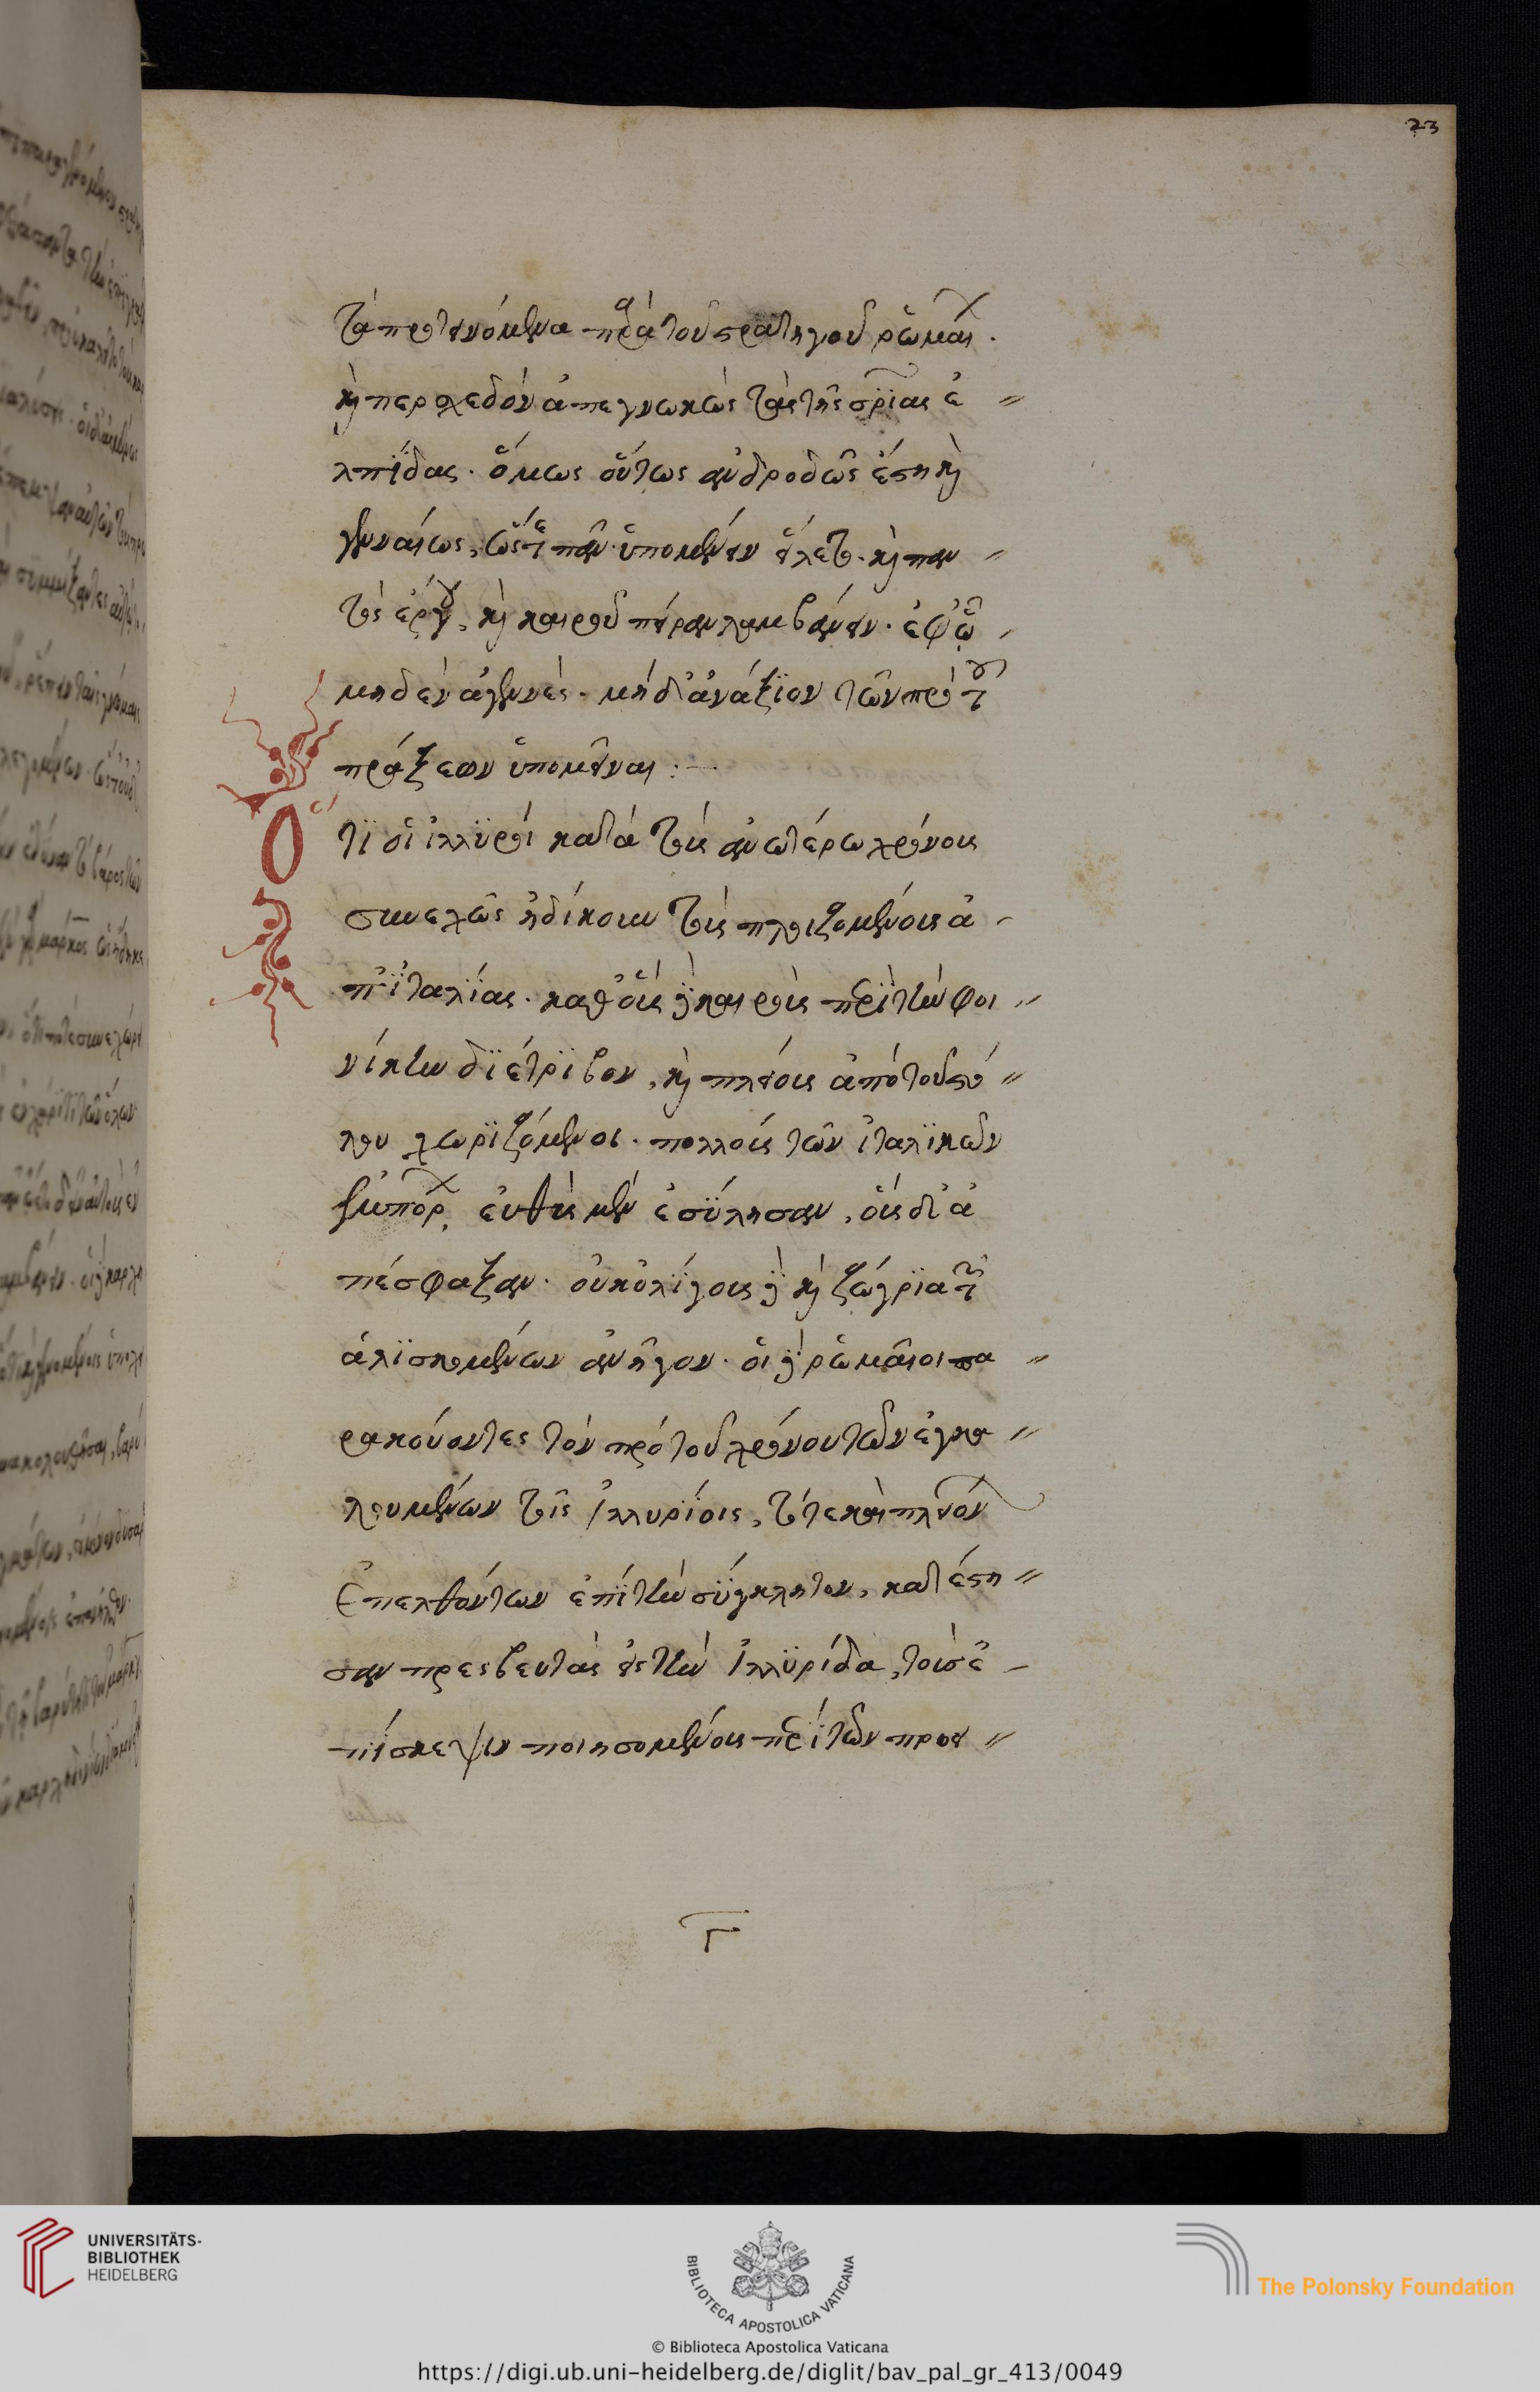 23
τὰ προτεινόμενα παρὰ τοῦ στρατηγοῦ ῥωμαί.
καὶ περ σχεδὸν ἀπεγνωκὼς τὰς τῆς σρίας ἐ
λπίδας. ὅμως οὕτως ἀνδρωδῶς ἔστη καὶ
γενναίως, ὥστε πᾶν ὑπομένειν εἵλετο. καὶ παν
τὸς ἔργου, καὶ καιροῦ πεῖραν λαμβάνειν. ἐφ' ᾧ
μηδὲν ἀγεννὲς. μηδ' ἀνάξϊον τῶν πρὸ τοῦ
πράξεων ὑπομεῖναι :-
Ὅ τϊ οἱ ἰλλϋριοὶ κατὰ τοὺς ἀνωτέρω χρόνους
συνεχῶς ἠδίκουν τοὺς πλοιζομένους ἀ
π' ϊταλΐας. καθ' οὓς δὲ καιροὺς περὶ τὴν φοι
νίκην δϊέτρϊβον, καὶ πλείους ἀπὸ τοῦ στό
λου χωρϊζόμενοι. πολλοὺς τῶν ἰταλϊκῶν
ἐμπόρ. οὓς μὲν ἐσΰλησαν, οὓς δ' ἀ
πέσφαξαν. οὐκ ὀλΐγους δὲ καὶ ζωγρΐα τῶν
ἁλϊσκομένων ἀνῆγον. οἱ δὲ ῥωμαῖοι πα
ρακούοντες τὸν πρὸ τοῦ χρόνον τῶν ἐγκα
λουμένων τοῖς Ἰλλυρϊοῖς, τότε καὶ πλειόν
ἐπελθόντων ἐπὶ τὴν σΰγκλητον, κατέστη
σαν πρεσβευτὰς εἰς τὴν Ἰλλϋρίδα, τοὺς ἐ
πΐσκεψιν ποιησομένους περὶ τῶν προει
Γ
UNIVERSITÄTS-
BIBLIOTHEK
HEIDELBERG
BIBLIOTECA APOSTOLICA VATICANA
© Biblioteca Apostolica Vaticana
The Polonsky Foundation
https://digi.ub.uni-heidelberg.de/diglit/bav_pal_gr_413/0049